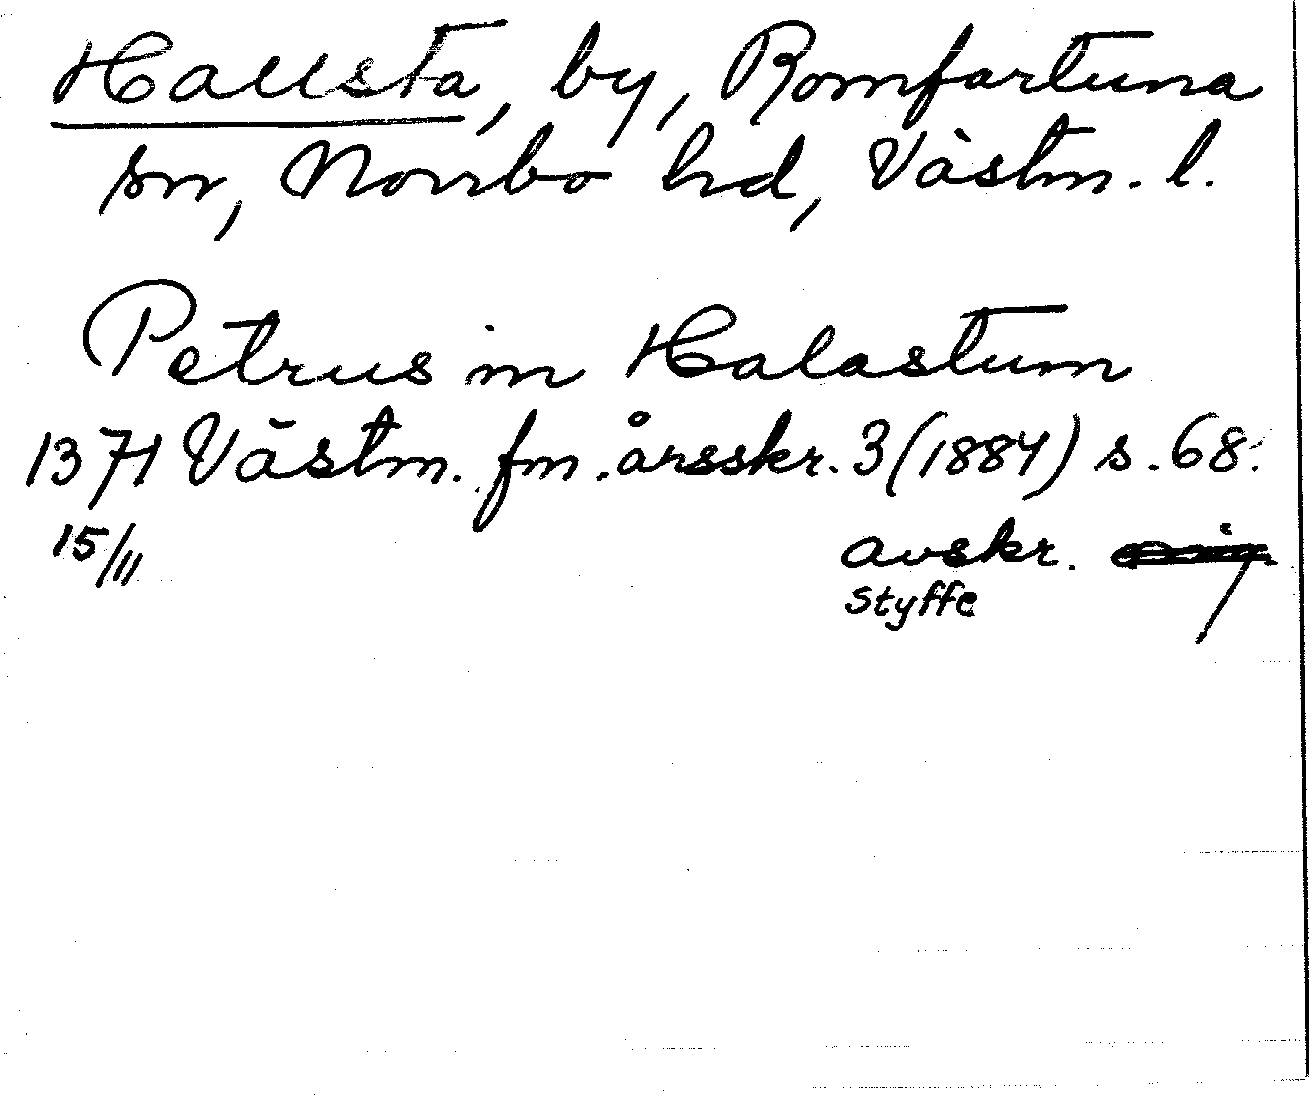 Hallsta, by, Romfartuna
sn, Norrbo hd, Västm. l.
Petrus in Halastum
1371 Västm. fm. årsskr. 3 (1884) s. 68.
15/11 avskr.
Styffe